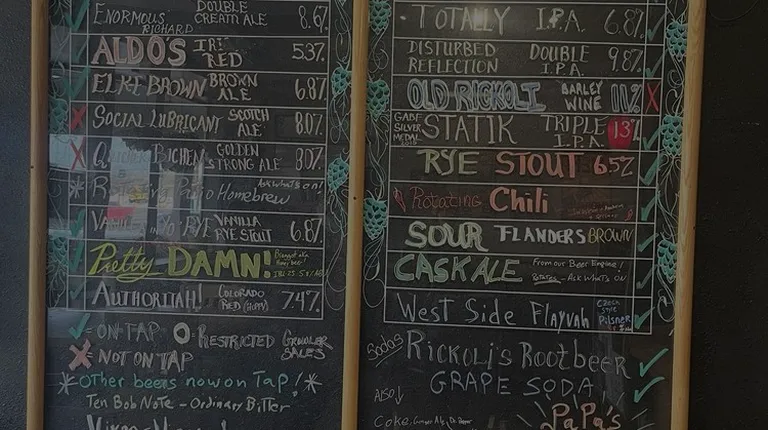 ENORMOUS RICHARD DOUBLE CREAM ALE 8.6%
ALDO'S IRISH RED 5.3%
ELKE BROWN BROWN ALE 6.8%
SOCIAL LUBRICANT SCOTCH ALE 8.0%
GOLDEN STRONG ALE 8.0%
Rotating Patio Homebrew Ask what's on!
VANILLA RYE STOUT 6.8%
Pretty DAMN!
AUTHORITAH! COLORADO RED (HOPPY) 7.4%
✓ = ON TAP O = RESTRICTED GROWLER SALES
X = NOT ON TAP
* Other beers now on Tap! *
Ten Bob Note - Ordinary Bitter
TOTALLY I.P.A. 6.8%
DISTURBED REFLECTION DOUBLE I.P.A. 9.8%
OLD RICKOLI BARLEY WINE 11%
GABF SILVER MEDAL STATIK TRIPLE I.P.A. 13%
RYE STOUT 6.5%
Rotating Chili
SOUR FLANDERS BROWN
CASK ALE From our Beer Engine! ROTATES - ASK WHAT'S ON
West Side Flayvah CZECH STYLE Pilsner
Sodas RICKOLI'S Rootbeer
GRAPE SODA!
ALSO ↓
Coke, Ginger Ale, Dr. Pepper
PaPa's